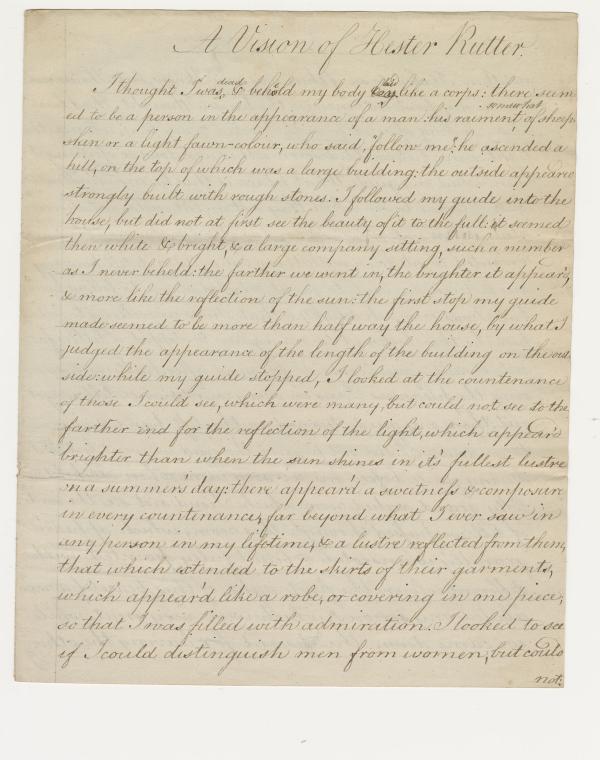 A Vision of Hester Rutter.
I thought I was, dead & behold my body laid like a corps: there seem
ed to be a person in the appearance of a man: his raiment, somewhat of sheep
skin or a light fawn-colour, who said, "follow me": he ascended a
hill, on the top of which was a large building: the outside appeared
strongly built with rough stones. I followed my guide into the
house, but did not at first see the beauty of it to the full: it seemed
then white & bright, & a large company sitting, such a number
as I never beheld: the farther we went in, the brighter it appear'd,
& more like the reflection of the sun: the first stop my guide
made seemed to be more than half way the house, by what I
judged the appearance of the length of the building on the out
side: while my guide stopped, I looked at the countenance
of those I could see, which were many, but could not see to the
farther end for the reflection of the light, which appear'd
brighter than when the sun shines in it's fullest lustre
on a summer's day: there appear'd a sweetness & composure
in every countenance, far beyond what I ever saw in
any person in my lifetime, & a lustre reflected from them,
that which extended to the skirts of their garments,
which appear'd like a robe, or covering in one piece,
so that I was filled with admiration. I looked to see
if I could distinguish men from women, but could
not: